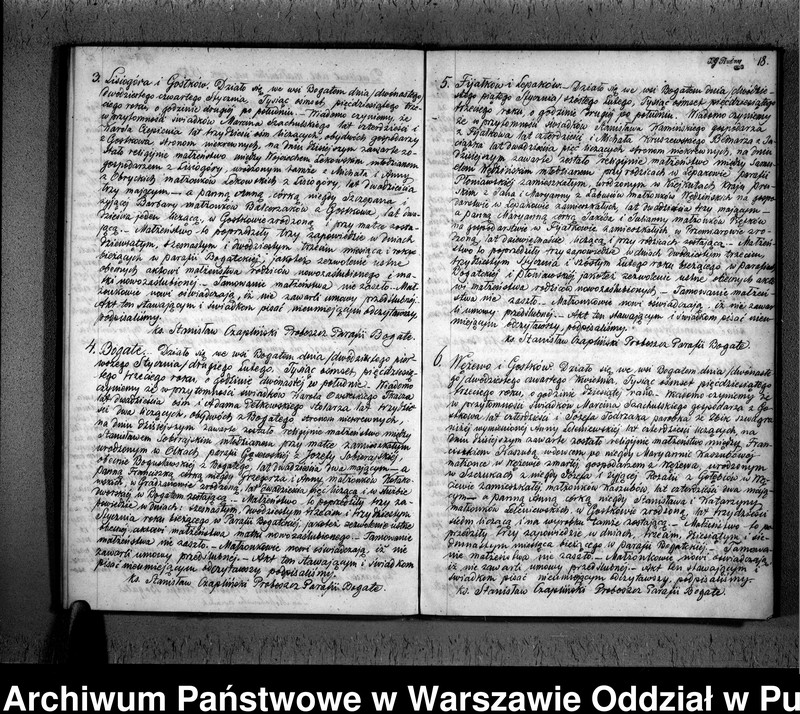 3. Lisiogóra i Gostków. Działo się we wsi Bogatem dnia /dwunastego/
dwudziestego czwartego Stycznia, Tysiąc ośmset pięćdziesiątego trze-
ciego roku, o godzinie drugiej po południu. — Wiadomo czynimy, że
w przytomności świadków Marcina Szachulskiego lat czterdzieści i
Karola lat trzydzieści ośm liczących, obydwóch gospodarzy
z Gostkowa stronom niekrewnych, na dniu dzisiejszym zawarte zo-
stało religijne małżeństwo między Wojciechem Lekowskim młodzianem
gospodarzem z Lisiogóry, urodzonym tamże z Michała i Anny
z Obryckich małżonków Lekowskich z Lisiogóry, lat dwadzieścia
trzy mającym — a panną Anną córką niegdy Szczepana i
żyjącej Barbary małżonków z Gostkowa, lat dwa-
dzieścia jeden liczącą, w Gostkowie zrodzoną i przy matce zosta-
jącą. — Małżeństwo to poprzedziły trzy zapowiedzie w dniach
dziewiątym, szesnastym i dwudziestym trzecim miesiąca i roku
bieżących w parafii Bogackiej, jakoteż zezwolenie ustne
obecnych aktowi małżeństwa rodziców nowozaślubionego i ma-
tki nowozaślubionej. Tamowanie małżeństwa nie zaszło. — Mał-
żonkowie nowi oświadczają, iż nie zawarli umowy przedślubnej.
Akt ten stawającym i świadkom pisać nieumiejącym odczytawszy,
podpisaliśmy.
ks. Stanisław Czapliński Proboszcz Parafii Bogate.
4. Bogate. Działo się we wsi Bogatem dnia /dwudziestego pier-
wszego Stycznia/ drugiego Lutego, Tysiąc ośmset pięćdziesią-
tego trzeciego roku, o godzinie dwónastej w południe. — Wiadomo
czynimy, że w przytomności świadków Karola Tkacza
lat dwadzieścia ośm i Adama Stolarza lat trzydzie-
ści dwa liczących, obydwóch z Bogatego, stronom niekrewnych,
na dniu dzisiejszym zawarte zostało religijne małżeństwo między
Stanisławem Sobierajskim, młodzianem przy matce zamieszkałym
urodzonym w parafii z Józefy Sobierajskiej,
obecnie Bogusławskiej z Bogatego, lat dwadzieścia dwa mającym — a
panną Franciszką córką niegdy Grzegorza i Anny małżonków
w zrodzoną, lat dwadzieścia pięć liczącą i w służbie
dworskiej w Bogatem zostającą. — Małżeństwo to poprzedziły trzy za-
powiedzie w dniach: szesnastym, dwudziestym trzecim i trzydziestym
Stycznia roku bieżącego w Parafii Bogackiej, jakoteż zezwolenie ustne
obecnej aktowi małżeństwa matki nowozaślubionego. — Tamowanie
małżeństwa nie zaszło. — Małżonkowie nowi oświadczają, iż nie
zawarli umowy przedślubnej. — Akt ten stawającym i świadkom
pisać nieumiejącym odczytawszy podpisaliśmy.
ks. Stanisław Czapliński Proboszcz Parafii Bogate.
18.
5. Fijałków i Łępaków. Działo się we wsi Bogatem dnia /dwudzie-
stego piątego Stycznia/ szóstego Lutego, Tysiąc ośmset pięćdziesiątego
trzeciego roku, o godzinie drugiej po południu. Wiadomo czynimy
że w przytomności świadków Stanisława Kamińskiego gospodarza
z Fijałkowa lat czterdzieści, i Michała Kruszewskiego
lat dwadzieścia pięć liczących, stronom niekrewnych, na dniu
dzisiejszym zawarte zostało religijne małżeństwo między
młodzianem przy rodzicach w Łępakowie parafii
zamieszkałym, urodzonym w kraju Pru-
skim z Jana i Maryanny z małżonków na gospo-
darstwie w Łępakowie zamieszkałych, lat dwadzieścia trzy mającym —
a panną Maryanną córką i Zuzanny małżonków
na gospodarstwie w Fijałkowie zamieszkałych, w zro-
dzoną, lat liczącą i przy rodzicach zostającą. — Małżeń-
stwo to poprzedziły trzy zapowiedzie w dniach: dwudziestym trzecim,
trzydziestym Stycznia, i szóstym Lutego roku bieżącego w parafiach
Bogackiej i jakoteż zezwolenie ustne obecnych akto-
wi małżeństwa rodziców nowozaślubionych. — Tamowanie małżeń-
stwa nie zaszło. — Małżonkowie nowi oświadczają, iż nie zawar-
li umowy przedślubnej. — Akt ten stawającym i świadkom pisać nieu-
miejącym odczytawszy, podpisaliśmy.
ks. Stanisław Czapliński Proboszcz Parafii Bogate.
6. i Gostków. Działo się we wsi Bogatem dnia /dwunaste-
go/ dwudziestego czwartego Kwietnia, Tysiąc ośmset pięćdziesiątego
trzeciego roku, o godzinie dziesiątej rano. — Wiadomo czynimy, że
w przytomności świadków Marcina Szachulskiego gospodarza z Go-
stkowa, lat czterdzieści, i Józefa
niżej wymienionej Anny lat czterdzieści liczących, na
dniu dzisiejszym zawarte zostało religijne małżeństwo między Fran-
ciszkiem Kaszubą, wdowcem po niegdy Maryannie
małżonce w zmarłej, gospodarzem z urodzonym
w z niegdy Józefa i żyjącej Rozalii z Gołębiów w
zamieszkałej, małżonków Kaszubów, lat czterdzieści dwa mają-
cym — a panną Anną córką niegdy Stanisława i Katarzyny
małżonków w Gostkowie zrodzoną, lat trzydzieści
siedm liczącą i na wyrobku tamże zostającą. — Małżeństwo to po-
przedziły trzy zapowiedzie w dniach: trzecim, dziesiątym i sie-
dmnastym miesiąca bieżącego w parafii Bogackiej. — Tamowa-
nie małżeństwa nie zaszło. — Małżonkowie nowi oświadczają,
iż nie zawarli umowy przedślubnej. — Akt ten stawającym i
świadkom pisać nieumiejącym odczytawszy, podpisaliśmy. —
ks. Stanisław Czapliński Proboszcz Parafii Bogate.
Archiwum Państwowe w Warszawie Oddział w Pu